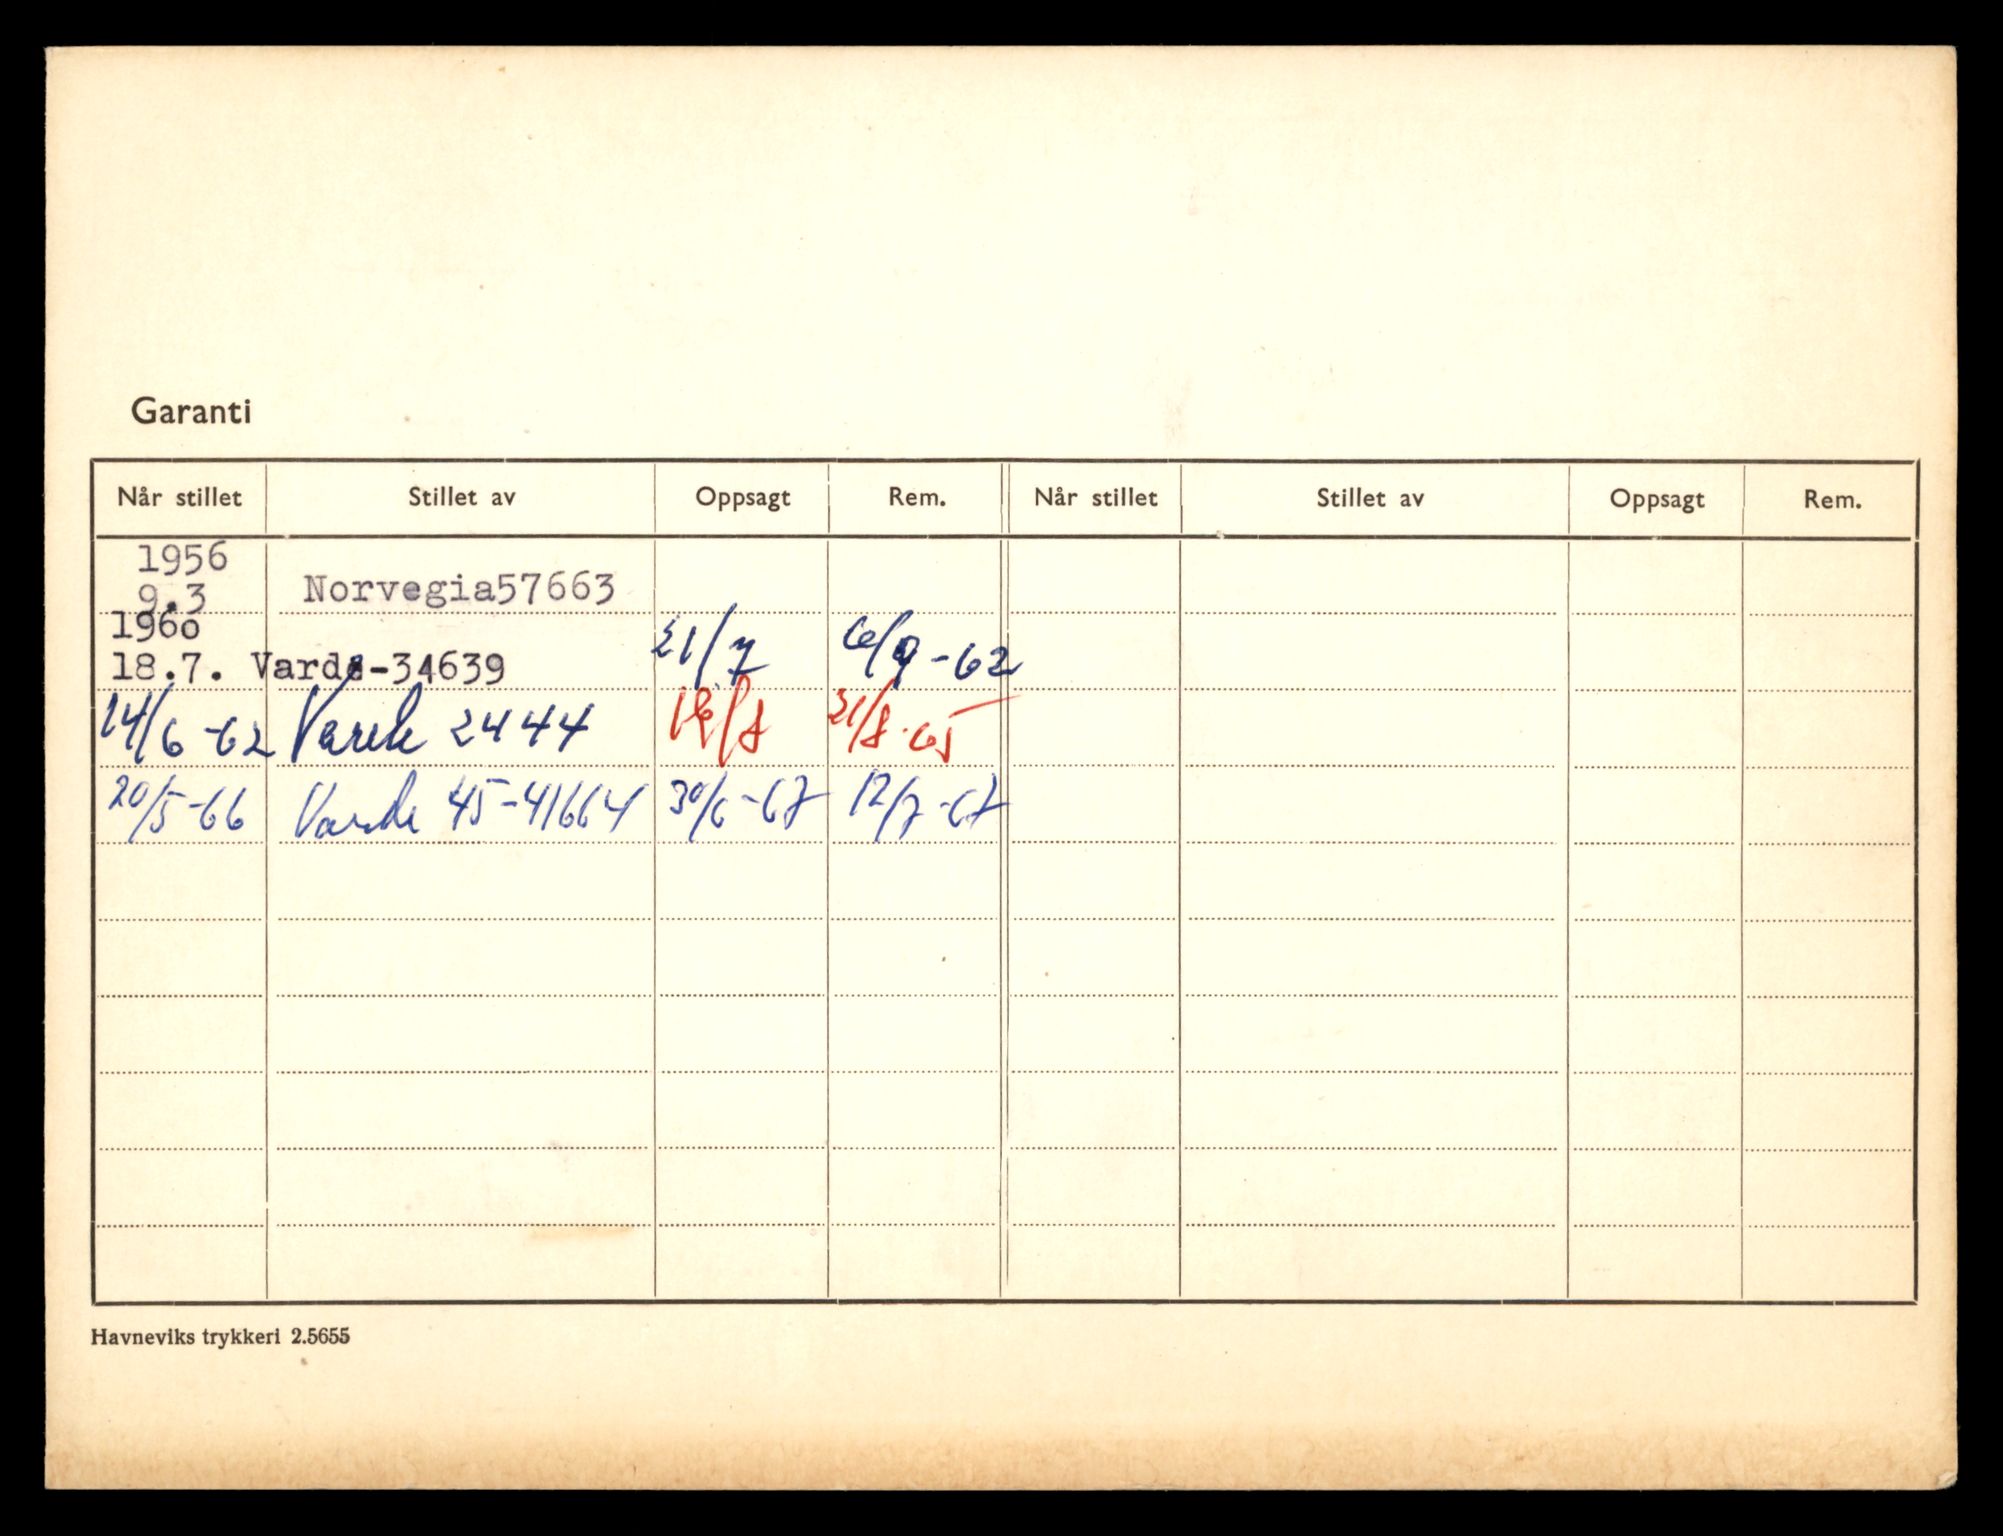 Garanti
Når stillet Stillet av Oppsagt Rem. Når stillet Stillet av Oppsagt Rem.
1956
9.3 Norvegia57663
1960
18.7. Varde-34639 21/7 6/9-62
14/6-62 Varde 2444 18/8 21/8-65
20/5-66 Varde 45-41664 30/6-67 12/7-67
Havneviks trykkeri 2.5655